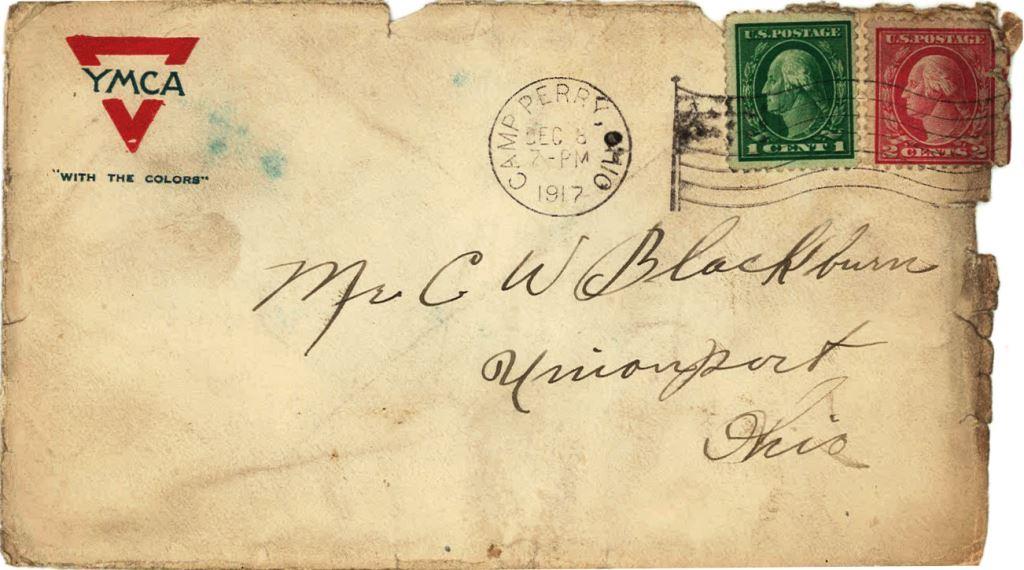 YMCA
"WITH THE COLORS"
CAMP PERRY, OHIO
DEC 8
7-PM
1917
U.S.POSTAGE
1 CENT 1
U.S.POSTAGE
2 CENTS 2
Mr C W Blackburn
Unionport
Ohio